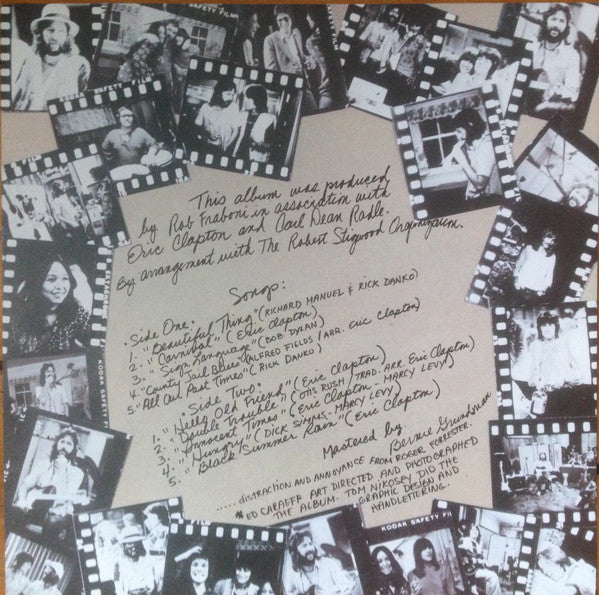 This album was produced
by Rob Fraboni in association with
Eric Clapton and Carl Dean Radle.
By arrangement with The Robert Stigwood Organization.
Songs:
• Side One •
1. "Beautiful Thing" (RICHARD MANUEL & RICK DANKO)
2. "Carnival" (Eric Clapton)
3. "Sign Language" (BOB DYLAN)
4. "County Jail Blues" (ALFRED FIELDS / ARR. Eric Clapton)
5. "All Our Past Times" (RICK DANKO)
• Side Two •
1. "Hello Old Friend" (Eric Clapton)
2. "Double Trouble" (OTIS RUSH / TRAD. ARR. Eric Clapton)
3. "Innocent Times" (Eric Clapton - MARCY LEVY)
4. "Hungry" (DICK SIMMS - MARCY LEVY)
5. "Black Summer Rain" (Eric Clapton)
Mastered by
Bernie Grundman
..... DISTRACTION AND ANNOYANCE FROM ROGER FORRESTER.
*ED CARAEFF ART DIRECTED AND PHOTOGRAPHED
THE ALBUM. TOM NIKOSEY DID THE
GRAPHIC DESIGN AND
HANDLETTERING.
SAFETY FILM
KODAK SAFETY
KODAK SAF
KODAK SAFETY FI